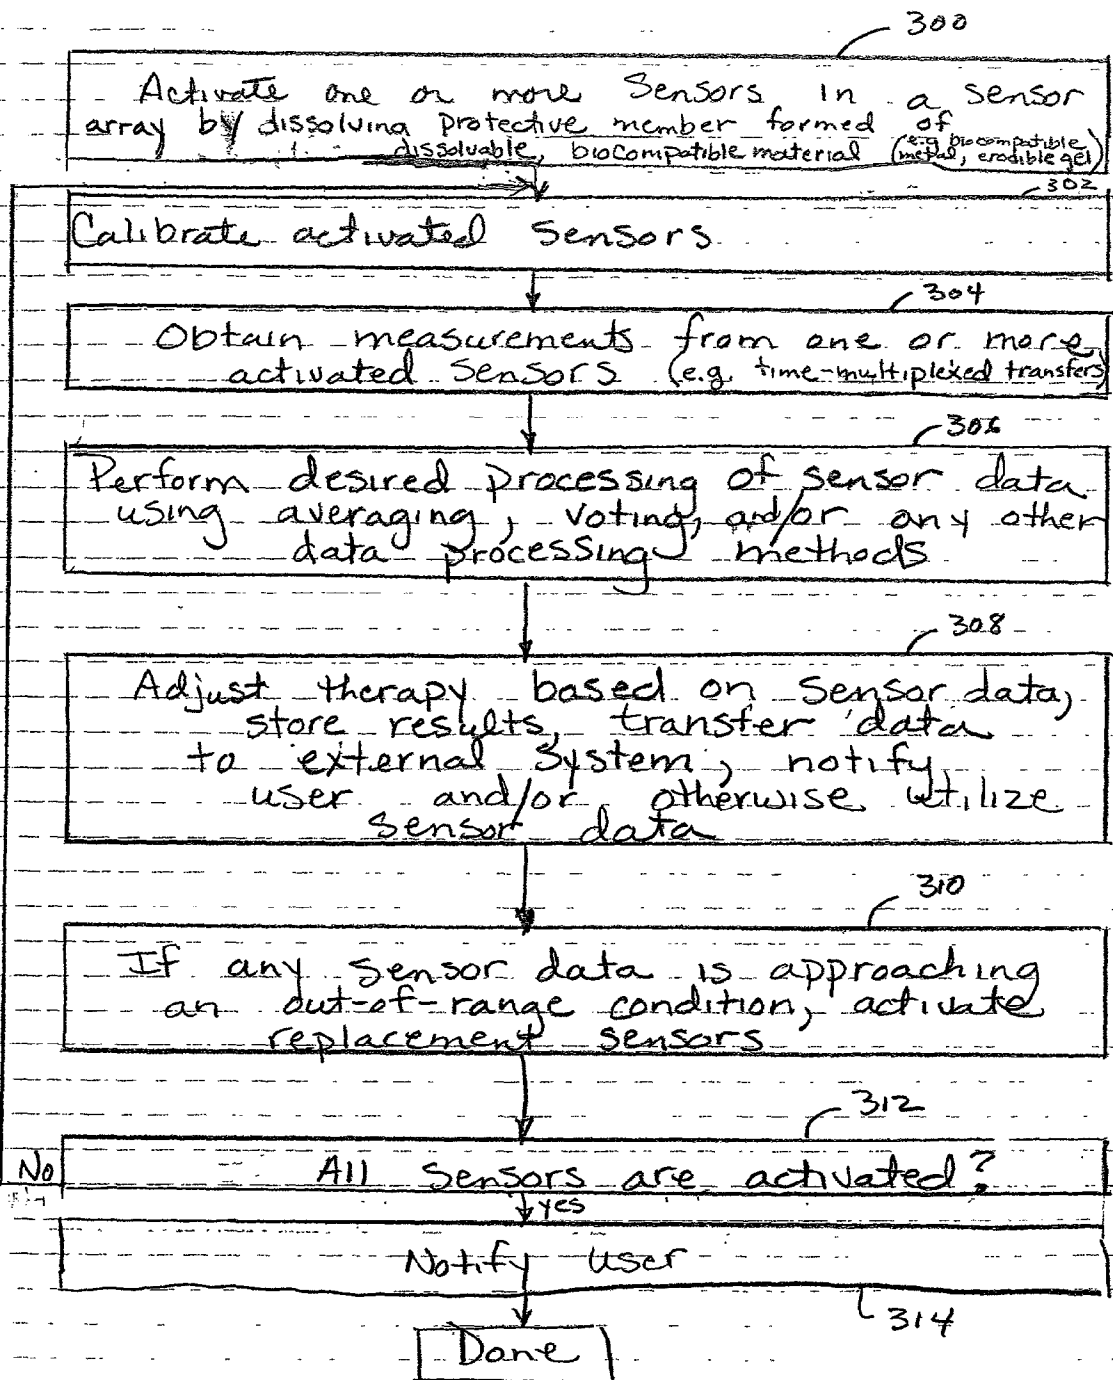 300
Activate one or more Sensors in a sensor
array by dissolving protective member formed of
dissolvable, biocompatible material (e.g. biocompatible
metal, erodible gel)
302
Calibrate activated Sensors
304
Obtain measurements from one or more
activated Sensors (e.g. time-multiplexed transfers)
306
Perform desired processing of sensor data
using averaging, voting, and/or any other
data processing methods
308
Adjust therapy based on sensor data,
store results, transfer data
to external system, notify
user and/or otherwise utilize
sensor data
310
If any sensor data is approaching
an out-of-range condition, activate
replacement sensors
312
No
All sensors are activated?
yes
Notify user
314
Done